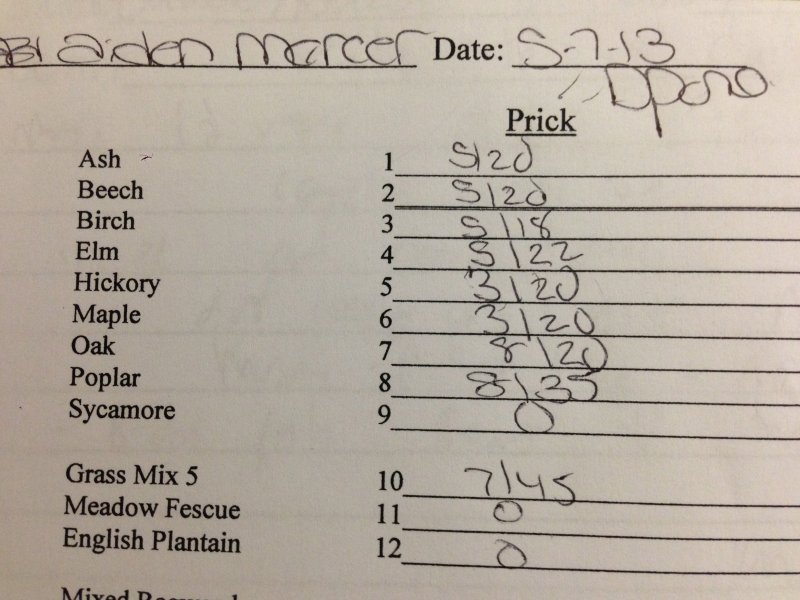 Aiden Mercer Date: 5-7-13
Prick
Ash 1 5/20
Beech 2 5/20
Birch 3 5/18
Elm 4 5/22
Hickory 5 3/20
Maple 6 3/20
Oak 7 8/20
Poplar 8 8/35
Sycamore 9 0
Grass Mix 5 10 7/45
Meadow Fescue 11 0
English Plantain 12 0
Mixed